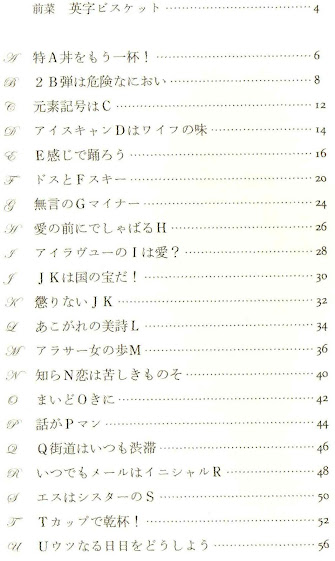 前菜 英字ビスケット 4
A 特A丼をもう一杯！ 6
B 2B弾は危険なにおい 8
C 元素記号はC 12
D アイスキャンDはワイフの味 14
E E感じで踊ろう 16
F ドスとFスキー 20
G 無言のGマイナー 24
H 愛の前にでしゃばるH 26
I アイラヴユーのIは愛？ 28
J JKは国の宝だ！ 30
K 懲りないJK 32
L あこがれの美詩L 34
M アラサー女の歩M 36
N 知らN恋は苦しきものそ 40
O まいどOきに 42
P 話がPマン 44
Q Q街道はいつも渋滞 46
R いつでもメールはイニシャルR 48
S エスはシスターのS 50
T Tカップで乾杯！ 52
U Uウツなる日日をどうしよう 56